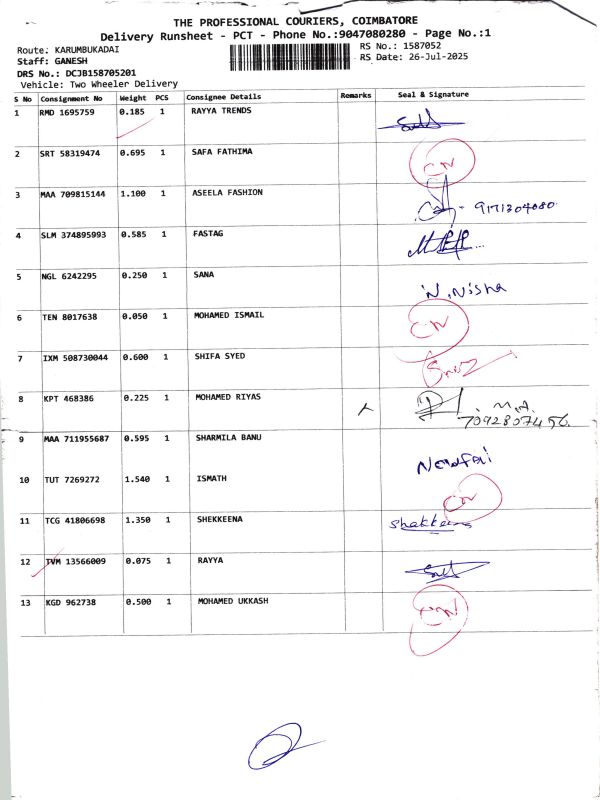 THE PROFESSIONAL COURIERS, COIMBATORE
Delivery Runsheet - PCT - Phone No.:9047080280 - Page No.:1
Route: KARUMBUKADAI
RS No.: 1587052
Staff: GANESH
RS Date: 26-Jul-2025
DRS No.: DCJB158705201
Vehicle: Two Wheeler Delivery
S No Consignment No Weight PCS Consignee Details Remarks Seal & Signature
1 RMD 1695759 0.185 1 RAYYA TRENDS
2 SRT 58319474 0.695 1 SAFA FATHIMA CN
3 MAA 709815144 1.100 1 ASEELA FASHION 9171304080
4 SLM 374895993 0.585 1 FASTAG
5 NGL 6242295 0.250 1 SANA N.Nisha
6 TEN 8017638 0.050 1 MOHAMED ISMAIL CN
7 IXM 508730044 0.600 1 SHIFA SYED
8 KPT 468386 0.225 1 MOHAMED RIYAS
7092807456
9 MAA 711955687 0.595 1 SHARMILA BANU
10 TUT 7269272 1.540 1 ISMATH CN
11 TCG 41806698 1.350 1 SHEKKEENA Shekkeena
12 TVM 13566009 0.075 1 RAYYA
13 KGD 962738 0.500 1 MOHAMED UKKASH CN